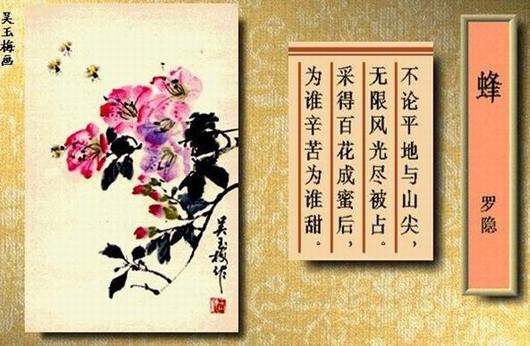 蜂
罗隐
不论平地与山尖，
无限风光尽被占。
采得百花成蜜后，
为谁辛苦为谁甜。
吴玉梅画
吴玉梅作